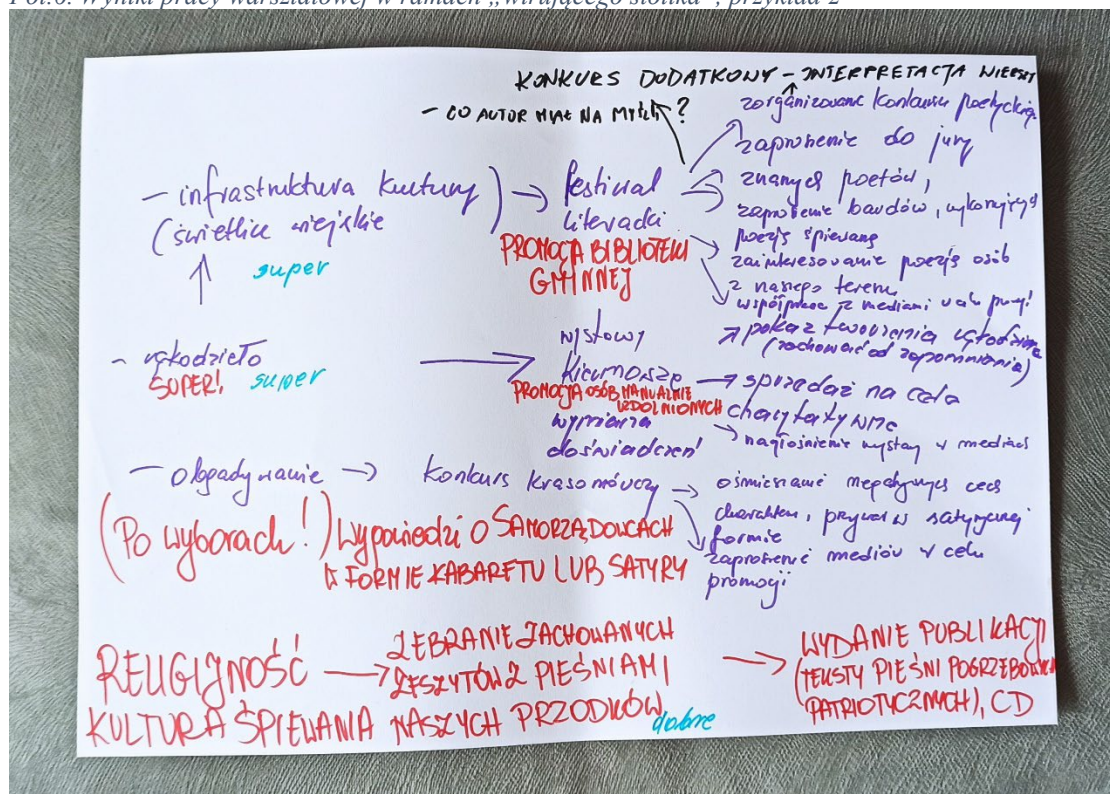 Fot.6. Wyniki pracy warsztatowej w ramach „wirującego stolika”, przykład 2
KONKURS DODATKOWY – INTERPRETACJA WIERSZY
– CO AUTOR MIAŁ NA MYŚLI?
zorganizowanie konkursu poetyckiego
zaproszenie do jury
znanych poetów,
zaproszenie bardów, wykonujących
poezję śpiewaną
zainteresowanie poezją osób
z naszego terenu
współpraca z mediami w celu promocji
– infrastruktura kultury
(świetlice wiejskie
super
→ festiwal
literacki
PROMOCJA BIBLIOTEKI
GMINNEJ
– rękodzieło
SUPER! super
wystawy
kiermasze
PROMOCJA OSÓB MANUALNIE
UZDOLNIONYCH
wymiana
doświadczeń
→ pokaz tworzenia rękodzieła
(zachować od zapomnienia)
→ sprzedaż na cele
charytatywne
→ nagłośnienie wystaw w mediach
– obgadywanie → konkurs krasomówczy
→ ośmieszanie negatywnych cech
charakteru, przywar w satyrycznej
formie
zaproszenie mediów w celu
promocji
(Po wyborach!) Wypowiedzi o SAMORZĄDOWCACH
W FORMIE KABARETU LUB SATYRY
RELIGIJNOŚĆ → ZEBRANIE ZACHOWANYCH
ZESZYTÓW Z PIEŚNIAMI
KULTURA ŚPIEWANIA NASZYCH PRZODKÓW
dobre
→ WYDANIE PUBLIKACJI
(TEKSTY PIEŚNI POGRZEBOWYCH
PATRIOTYCZNYCH), CD